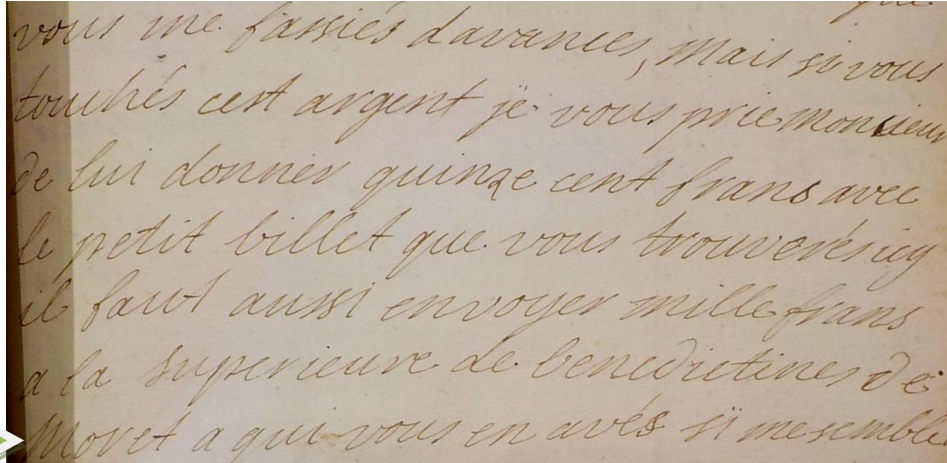 que
vous me fassiés davances, mais si vous
touchés cest argent je vous prie monsieur
de lui donner quinze cent frans avec
le petit billet que vous trouverés icy
il faut aussi envoyer mille frans
a la superieure de benedictines de
Moret a qui vous en avés si me semble